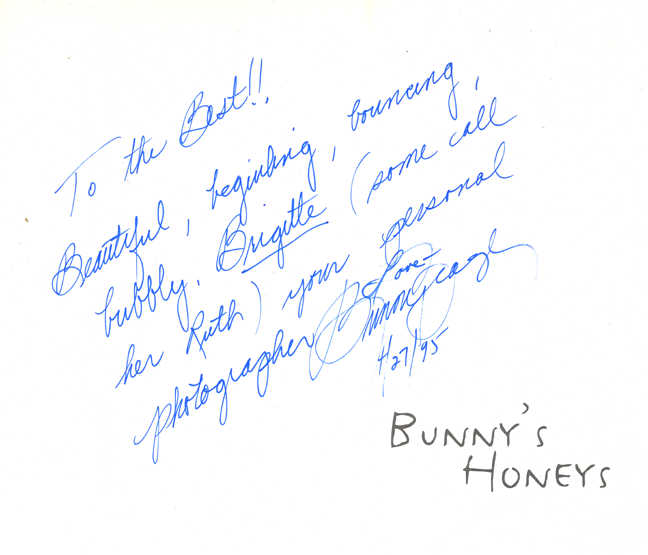 To the Best!!
Beautiful, beguiling, bouncing,
bubbly, Brigitte (some call
her Ruth) your personal
photographer Love-
Bunny Yeager
4/27/95
BUNNY'S
HONEYS